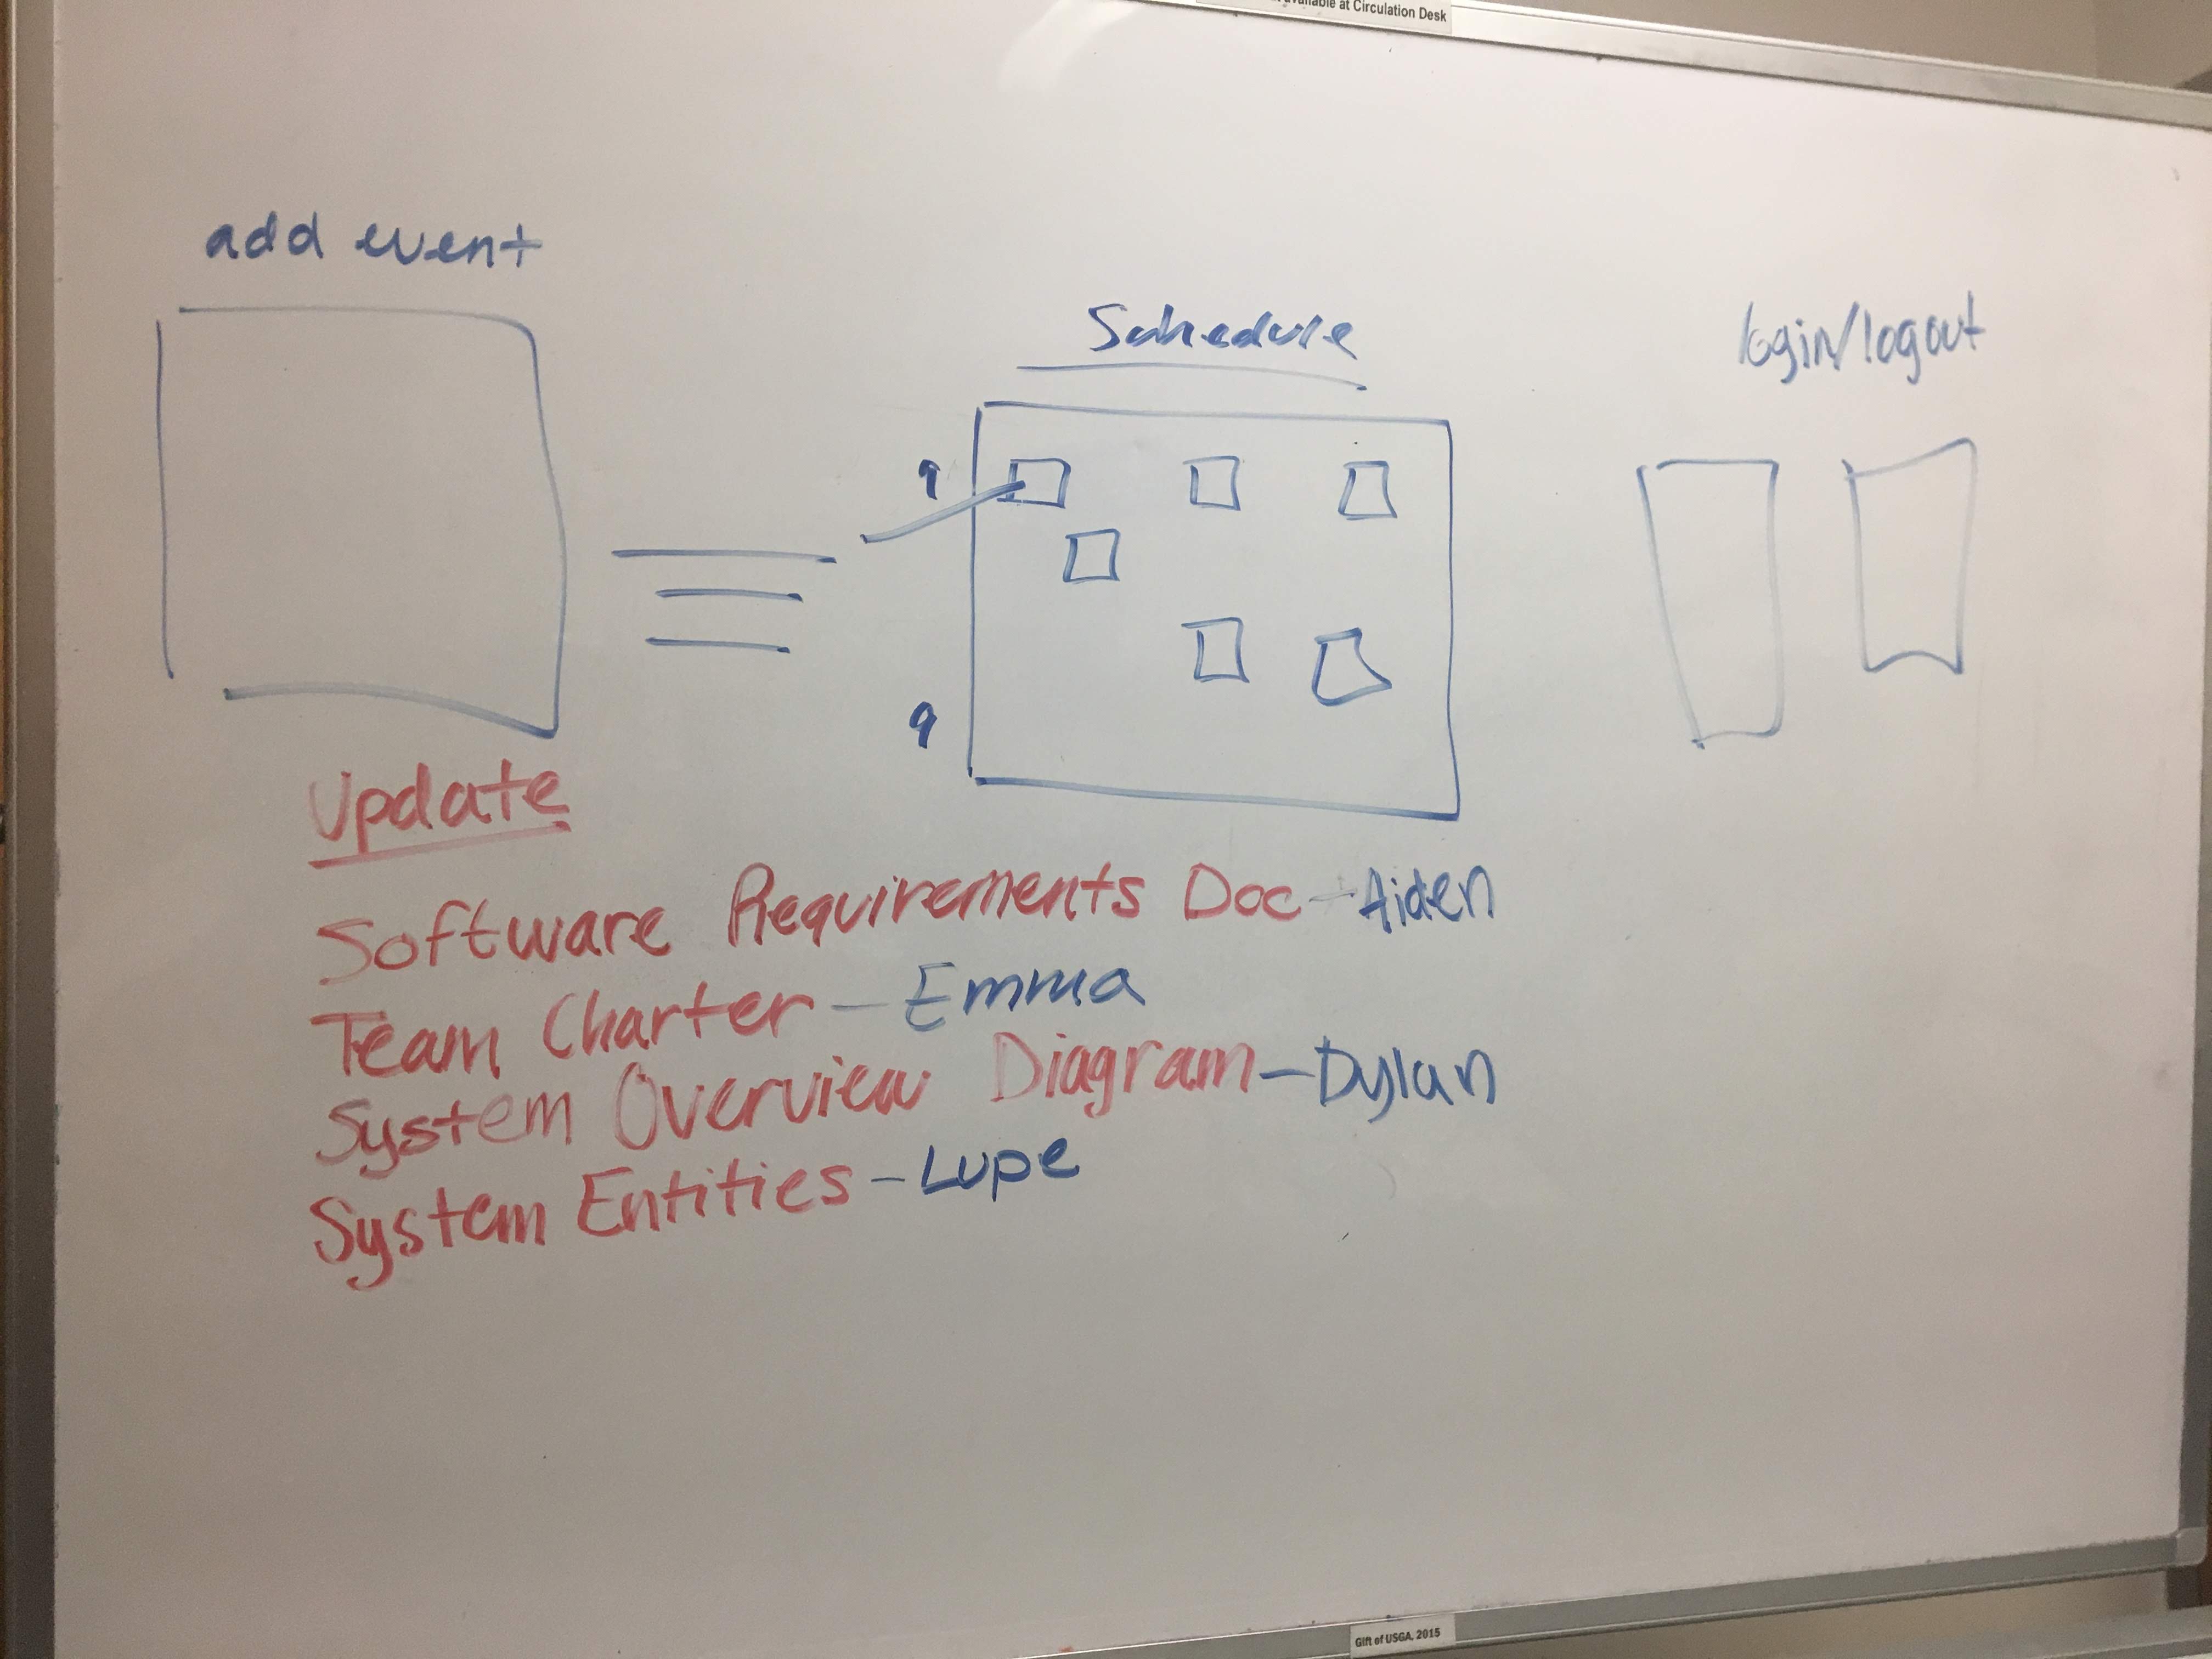 available at Circulation Desk
add event
Schedule
login/logout
9
9
Update
Software Requirements Doc - Aiden
Team Charter - Emma
System Overview Diagram - Dylan
System Entities - Lupe
Gift of USGA, 2015